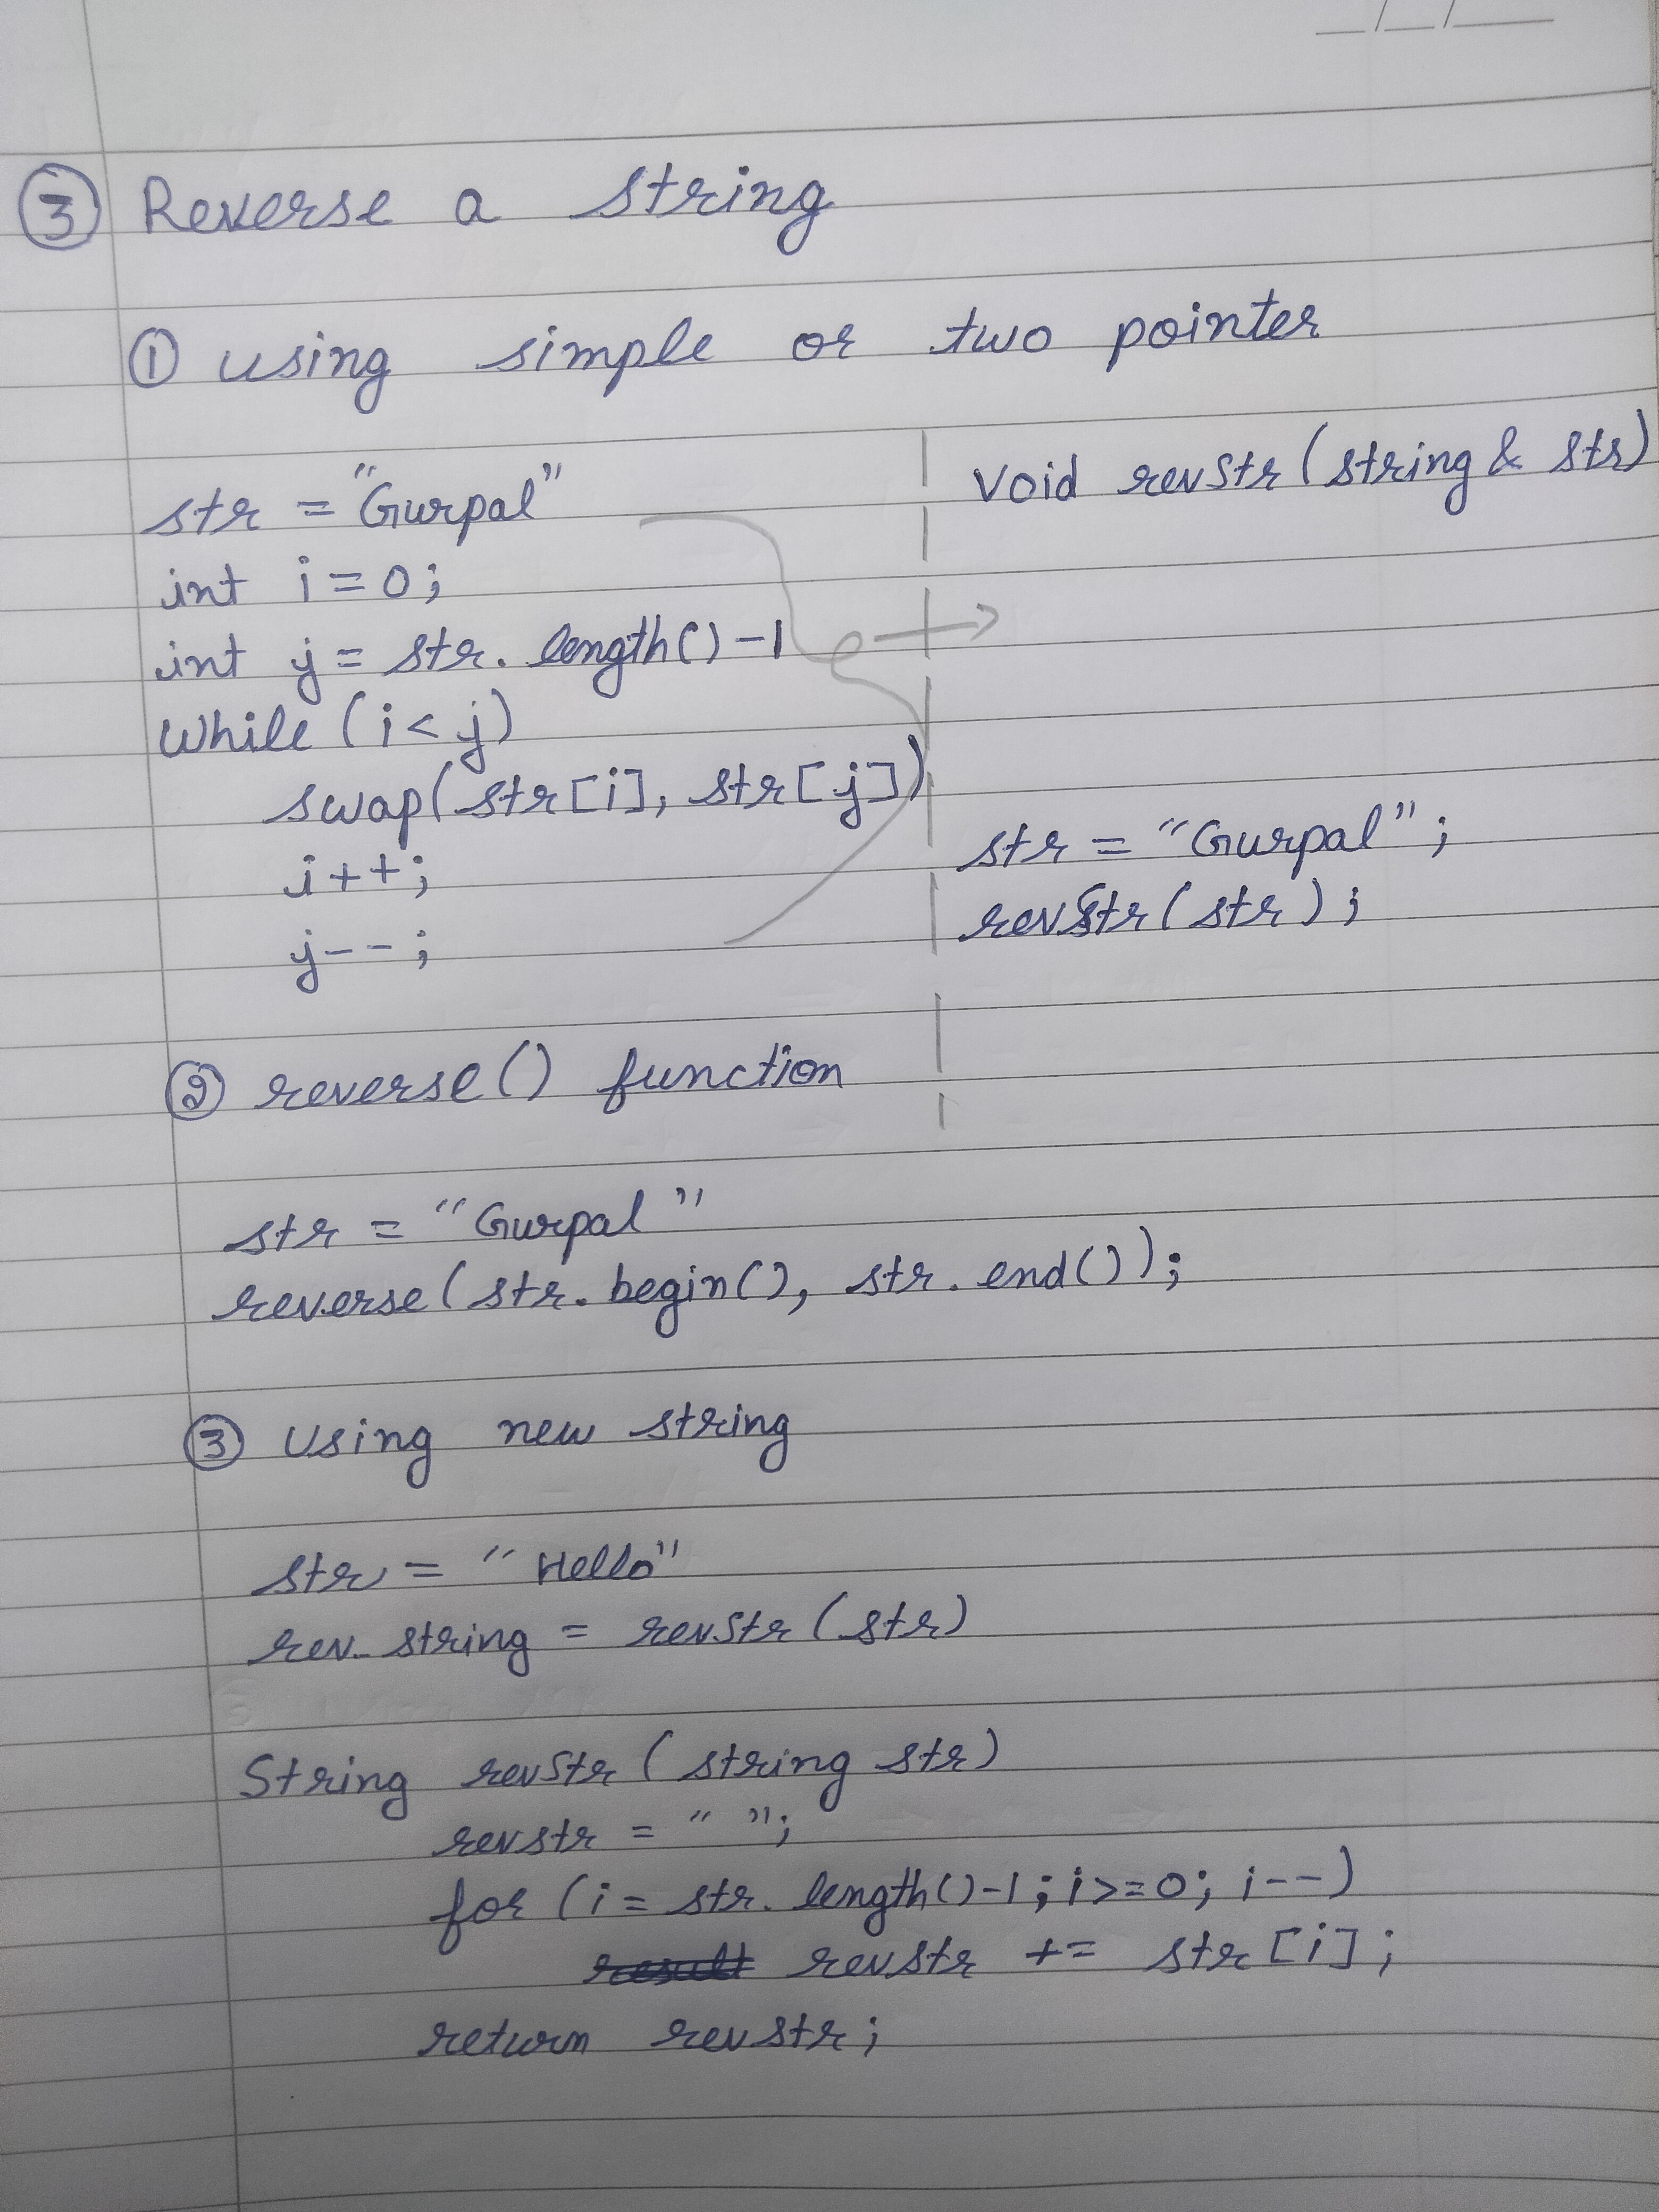 ③ Reverse a string
① using simple or two pointer
str = "Gurpal"
int i = 0;
int j = str. length() -1
while (i < j)
swap(str[i], str[j])
i++;
j--;
void revStr (string & str)
str = "Gurpal";
revStr(str);
② reverse() function
str = "Gurpal"
reverse(str. begin(), str. end());
③ Using new string
str = "Hello"
rev_string = revStr (str)
String revStr ( string str)
revstr = " ";
for (i = str. length()-1; i>=0; i--)
result revstr += str[i];
return revstr;